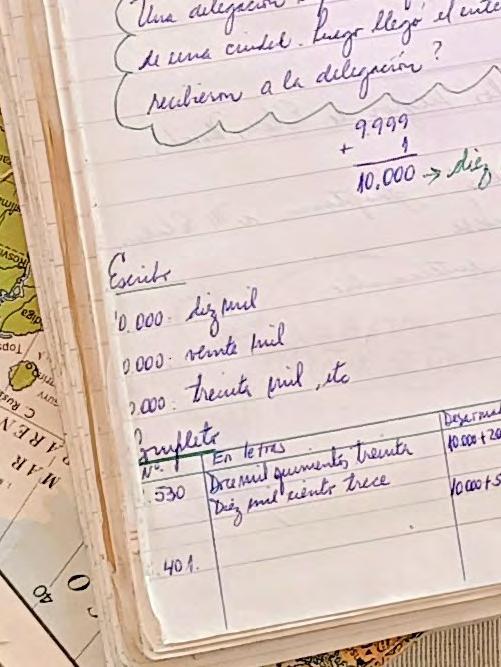 Una delegación
de una ciudad. Luego llegó el inte
recibieron a la delegación?
9.999
+ 1
10.000 → diez
Escribo
0.000. diez mil
0.000. veinte mil
0.000. treinta mil, etc
ompleto
Nº. En letras Desarmad
530 Doce mil quinientos treinta 10.000+20
Diez mil ciento trece 10.000+5
401.
MAR
40